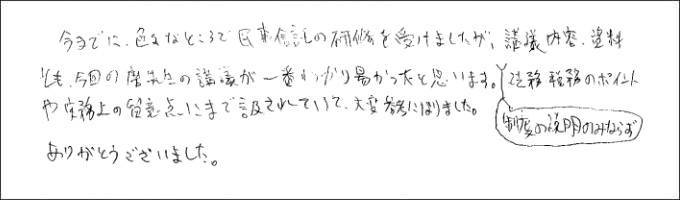 今までに、色々なところで民事信託の研修を受けましたが、講義内容、資料
とも、今回の 先生の講義が一番わかり易かったと思います。法務税務のポイント
や実務上の留意点にまで言及されていて、大変参考になりました。
制度の説明のみならず
ありがとうございました。